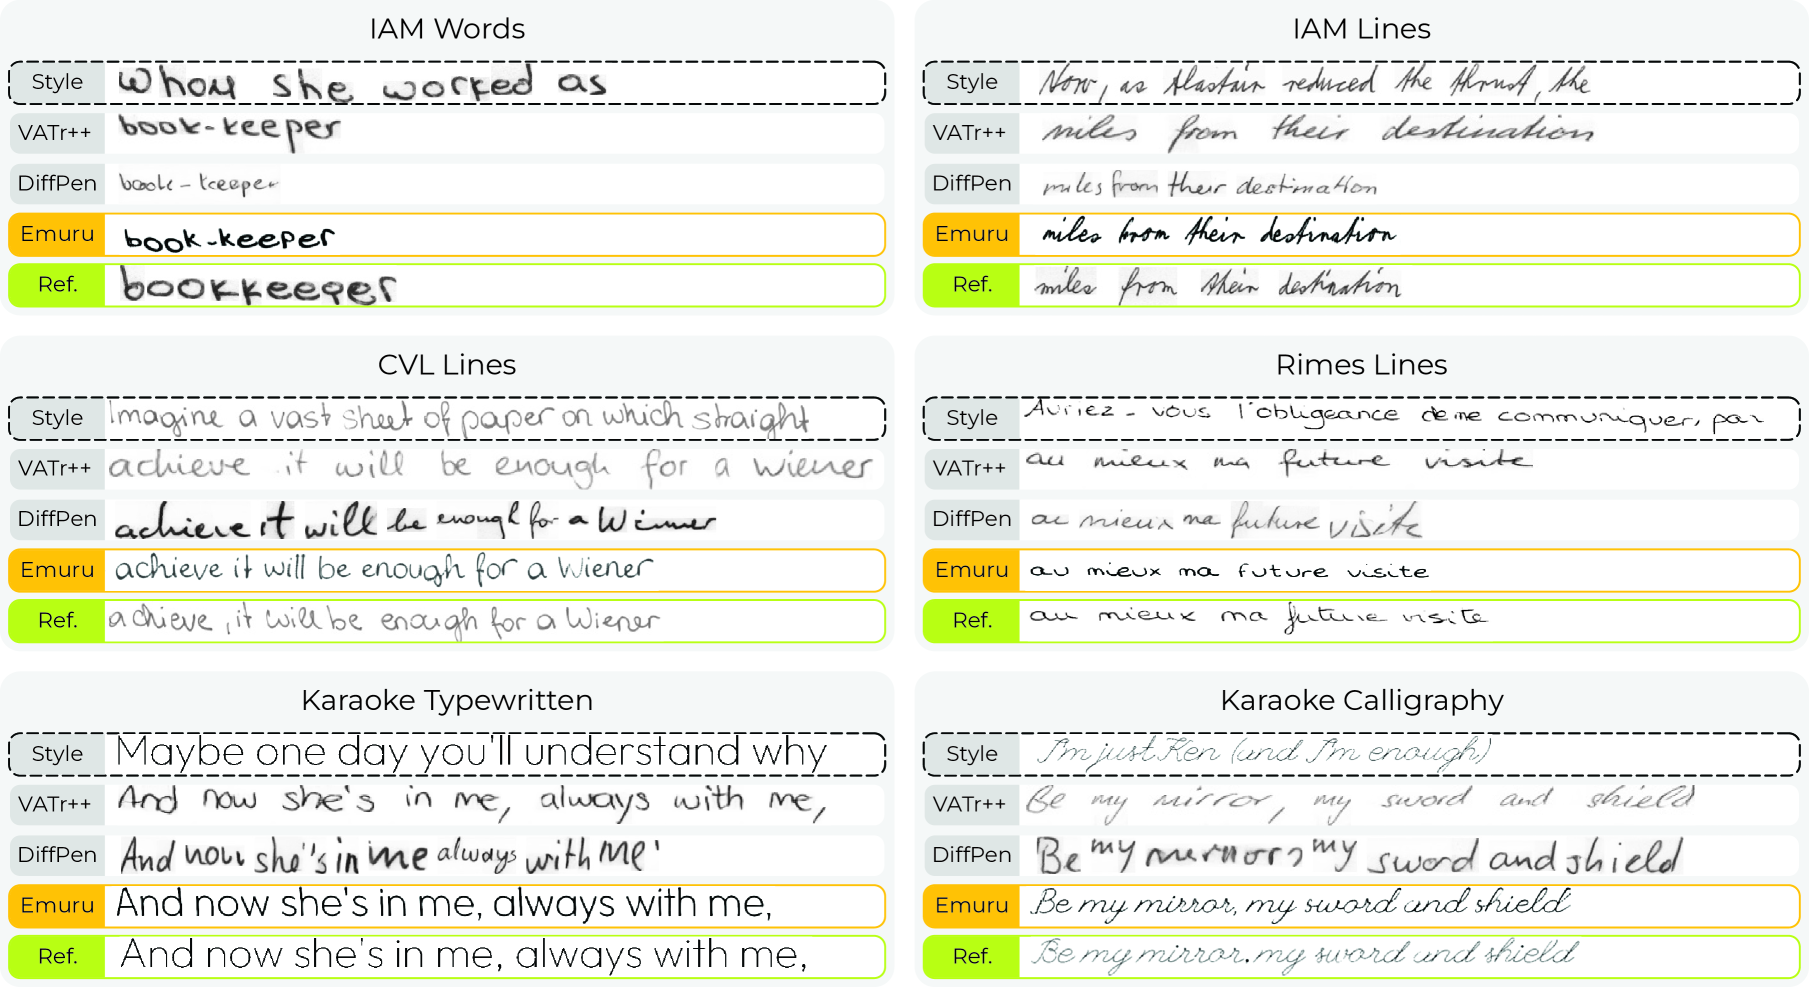 IAM Words
Style Whom she worked as
VATr++ book-keeper
DiffPen book-keeper
Emuru book-keeper
Ref. bookkeeper
IAM Lines
Style Now, as Alastair reduced the thrust, the
VATr++ miles from their destination
DiffPen miles from their destination
Emuru miles from their destination
Ref. miles from their destination
CVL Lines
Style Imagine a vast sheet of paper on which straight
VATr++ achieve it will be enough for a Wiener
DiffPen achieve it will be enough for a Winner
Emuru achieve it will be enough for a Wiener
Ref. achieve, it will be enough for a Wiener
Rimes Lines
Style Auriez-vous l'obligeance de me communiquer, par
VATr++ au mieux ma future visite
DiffPen au mieux ma future visite
Emuru au mieux ma future visite
Ref. au mieux ma future visite
Karaoke Typewritten
Style Maybe one day you'll understand why
VATr++ And now she's in me, always with me,
DiffPen And now she's in me always with me'
Emuru And now she's in me, always with me,
Ref. And now she's in me, always with me,
Karaoke Calligraphy
Style I'm just Ken (and I'm enough)
VATr++ Be my mirror, my sword and shield
DiffPen Be my my sword and shield
Emuru Be my mirror, my sword and shield
Ref. Be my mirror. my sword and shield